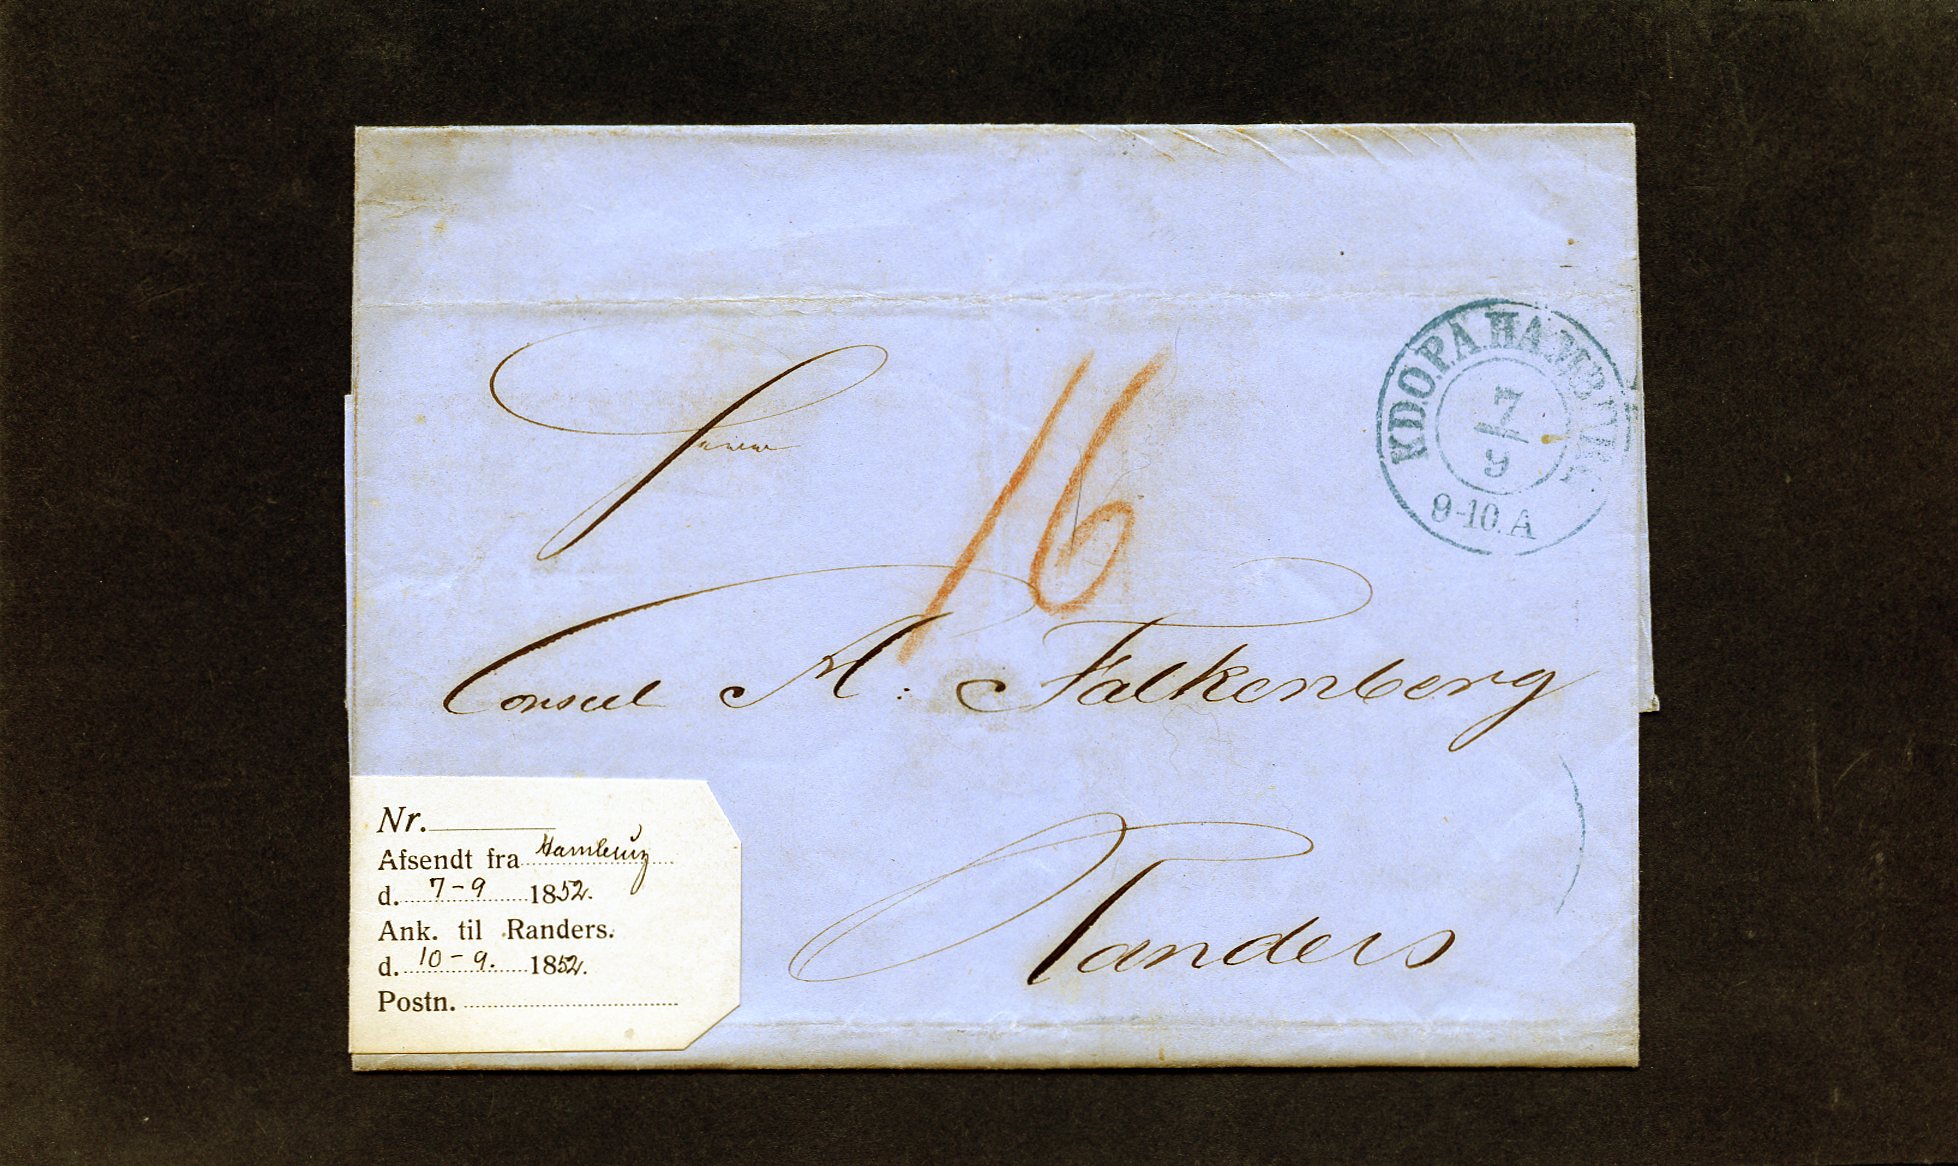 Herrn
16
K.D.O.P.A. HAMBURG
7/9
9-10. A
Consul A: Falkenberg
Randers
Nr.
Afsendt fra Hamburg
d. 7-9 1852.
Ank. til Randers.
d. 10-9. 1852.
Postn.